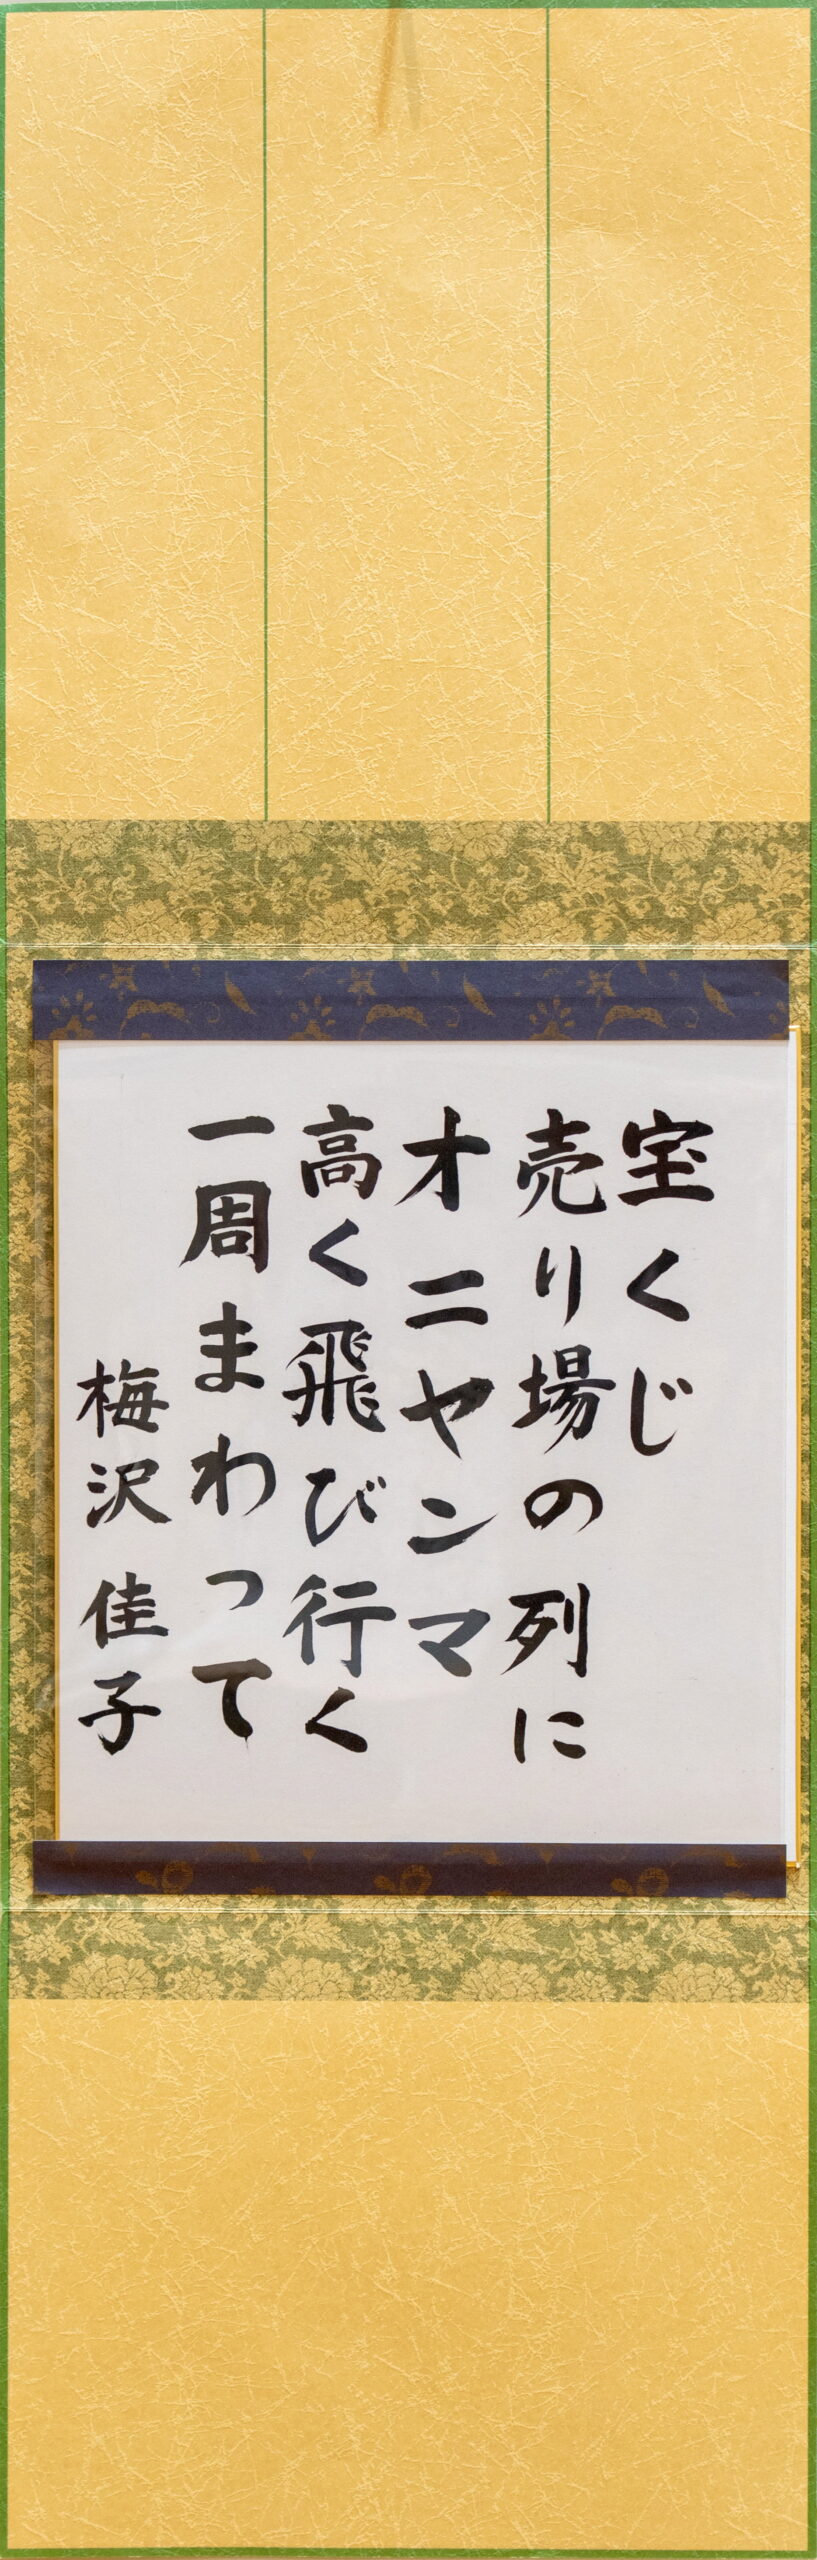 宝くじ
売り場の列に
オニヤンマ
高く飛び行く
一周まわって
梅沢佳子